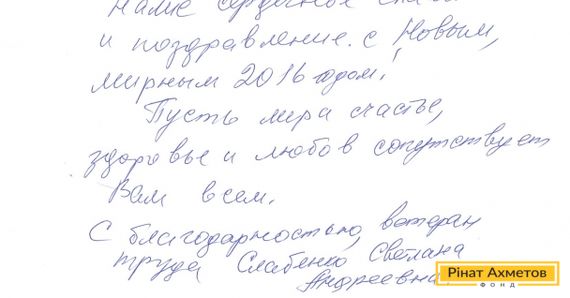 Наше сердечное
и поздравление с Новым,
мирным 2016 годом!
Пусть мира счастье,
здоровье и любов сопутствует
Вам всем.
С благодарностью, ветеран
труда Слабенко Светлана
Андреевна
Рінат Ахметов
ФОНД